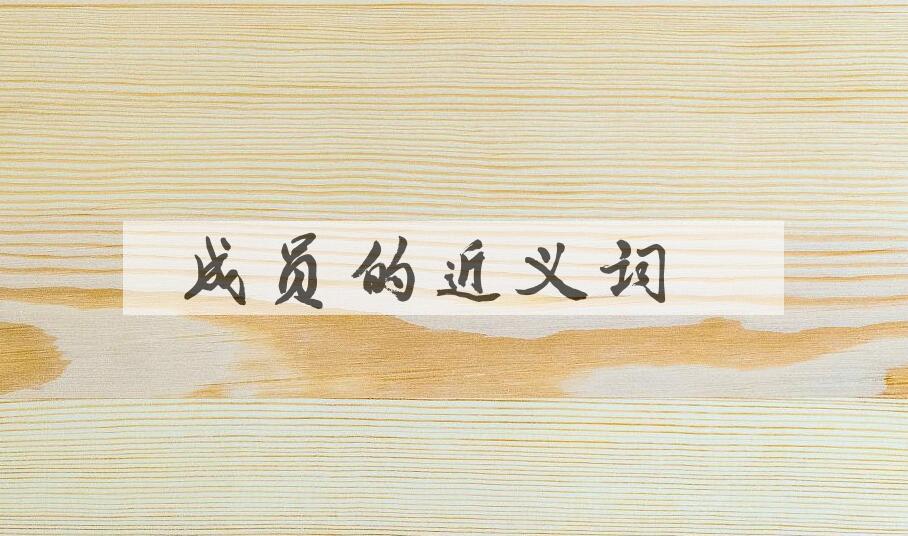 成员的近义词